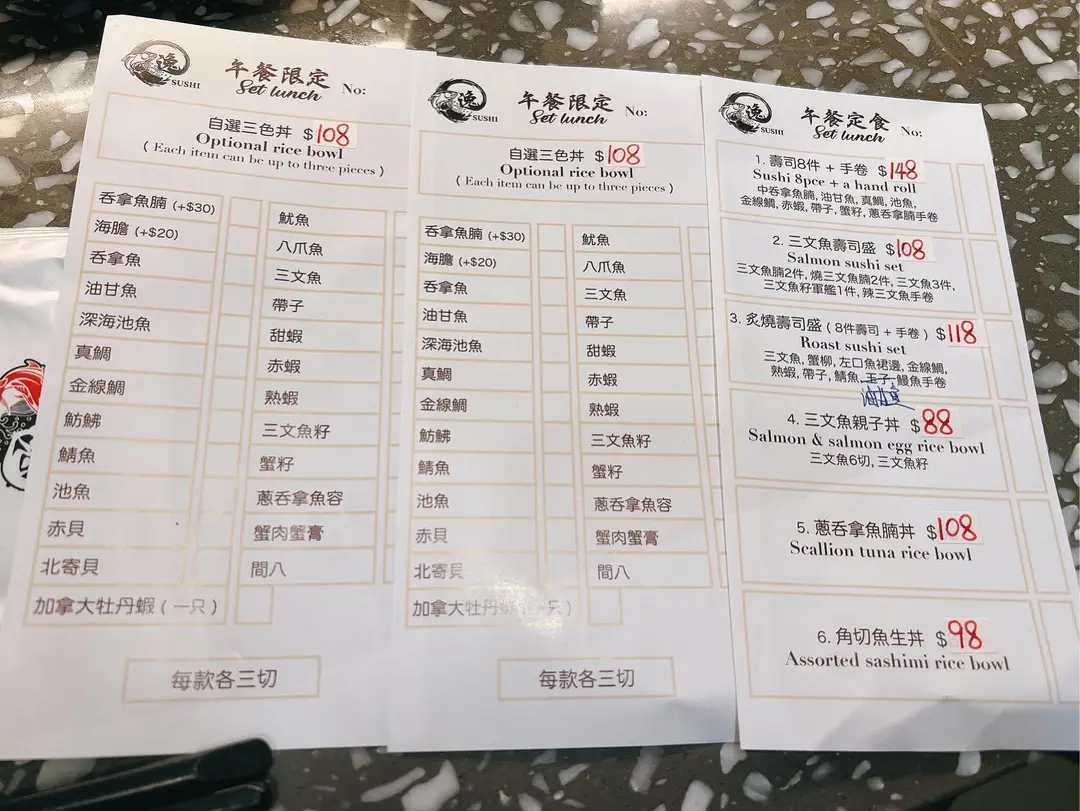 逸
SUSHI
午餐限定
Set lunch
No:
自選三色丼 $108
Optional rice bowl
( Each item can be up to three pieces )
吞拿魚腩 (+$30)
魷魚
海膽 (+$20)
八爪魚
吞拿魚
三文魚
油甘魚
帶子
深海池魚
甜蝦
真鯛
赤蝦
金線鯛
熟蝦
魴鮄
三文魚籽
鯖魚
蟹籽
池魚
蔥吞拿魚容
赤貝
蟹肉蟹膏
北寄貝
間八
加拿大牡丹蝦 ( 一只 )
每款各三切
逸
SUSHI
午餐限定
Set lunch
No:
自選三色丼 $108
Optional rice bowl
( Each item can be up to three pieces )
吞拿魚腩 (+$30)
魷魚
海膽 (+$20)
八爪魚
吞拿魚
三文魚
油甘魚
帶子
深海池魚
甜蝦
真鯛
赤蝦
金線鯛
熟蝦
魴鮄
三文魚籽
鯖魚
蟹籽
池魚
蔥吞拿魚容
赤貝
蟹肉蟹膏
北寄貝
間八
加拿大牡丹蝦 ( 一只 )
每款各三切
逸
SUSHI
午餐定食
Set lunch
No:
1. 壽司8件 + 手卷 $148
Sushi 8pce + a hand roll
中吞拿魚腩, 油甘魚, 真鯛, 池魚,
金線鯛, 赤蝦, 帶子, 蟹籽, 蔥吞拿腩手卷
2. 三文魚壽司盛 $108
Salmon sushi set
三文魚腩2件, 燒三文魚腩2件, 三文魚3件,
三文魚籽軍艦1件, 辣三文魚手卷
3. 炙燒壽司盛 ( 8件壽司 + 手卷 ) $118
Roast sushi set
三文魚, 蟹柳, 左口魚裙邊, 金線鯛,
熟蝦, 帶子, 鯖魚, 玉子, 鰻魚手卷
4. 三文魚親子丼 $88
Salmon & salmon egg rice bowl
三文魚6切, 三文魚籽
5. 蔥吞拿魚腩丼 $108
Scallion tuna rice bowl
6. 角切魚生丼 $98
Assorted sashimi rice bowl